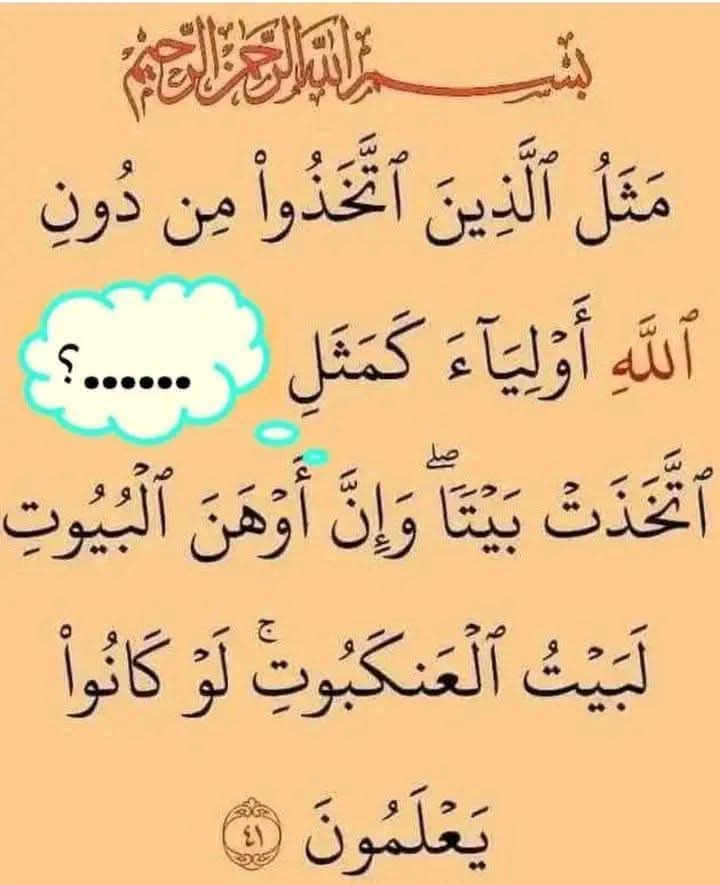 بِسْمِ اللَّهِ الرَّحْمَٰنِ الرَّحِيمِ
مَثَلُ ٱلَّذِينَ ٱتَّخَذُوا۟ مِن دُونِ
ٱللَّهِ أَوْلِيَآءَ كَمَثَلِ ......؟
ٱتَّخَذَتْ بَيْتًا ۖ وَإِنَّ أَوْهَنَ ٱلْبُيُوتِ
لَبَيْتُ ٱلْعَنكَبُوتِ ۚ لَوْ كَانُوا۟
يَعْلَمُونَ ٤١